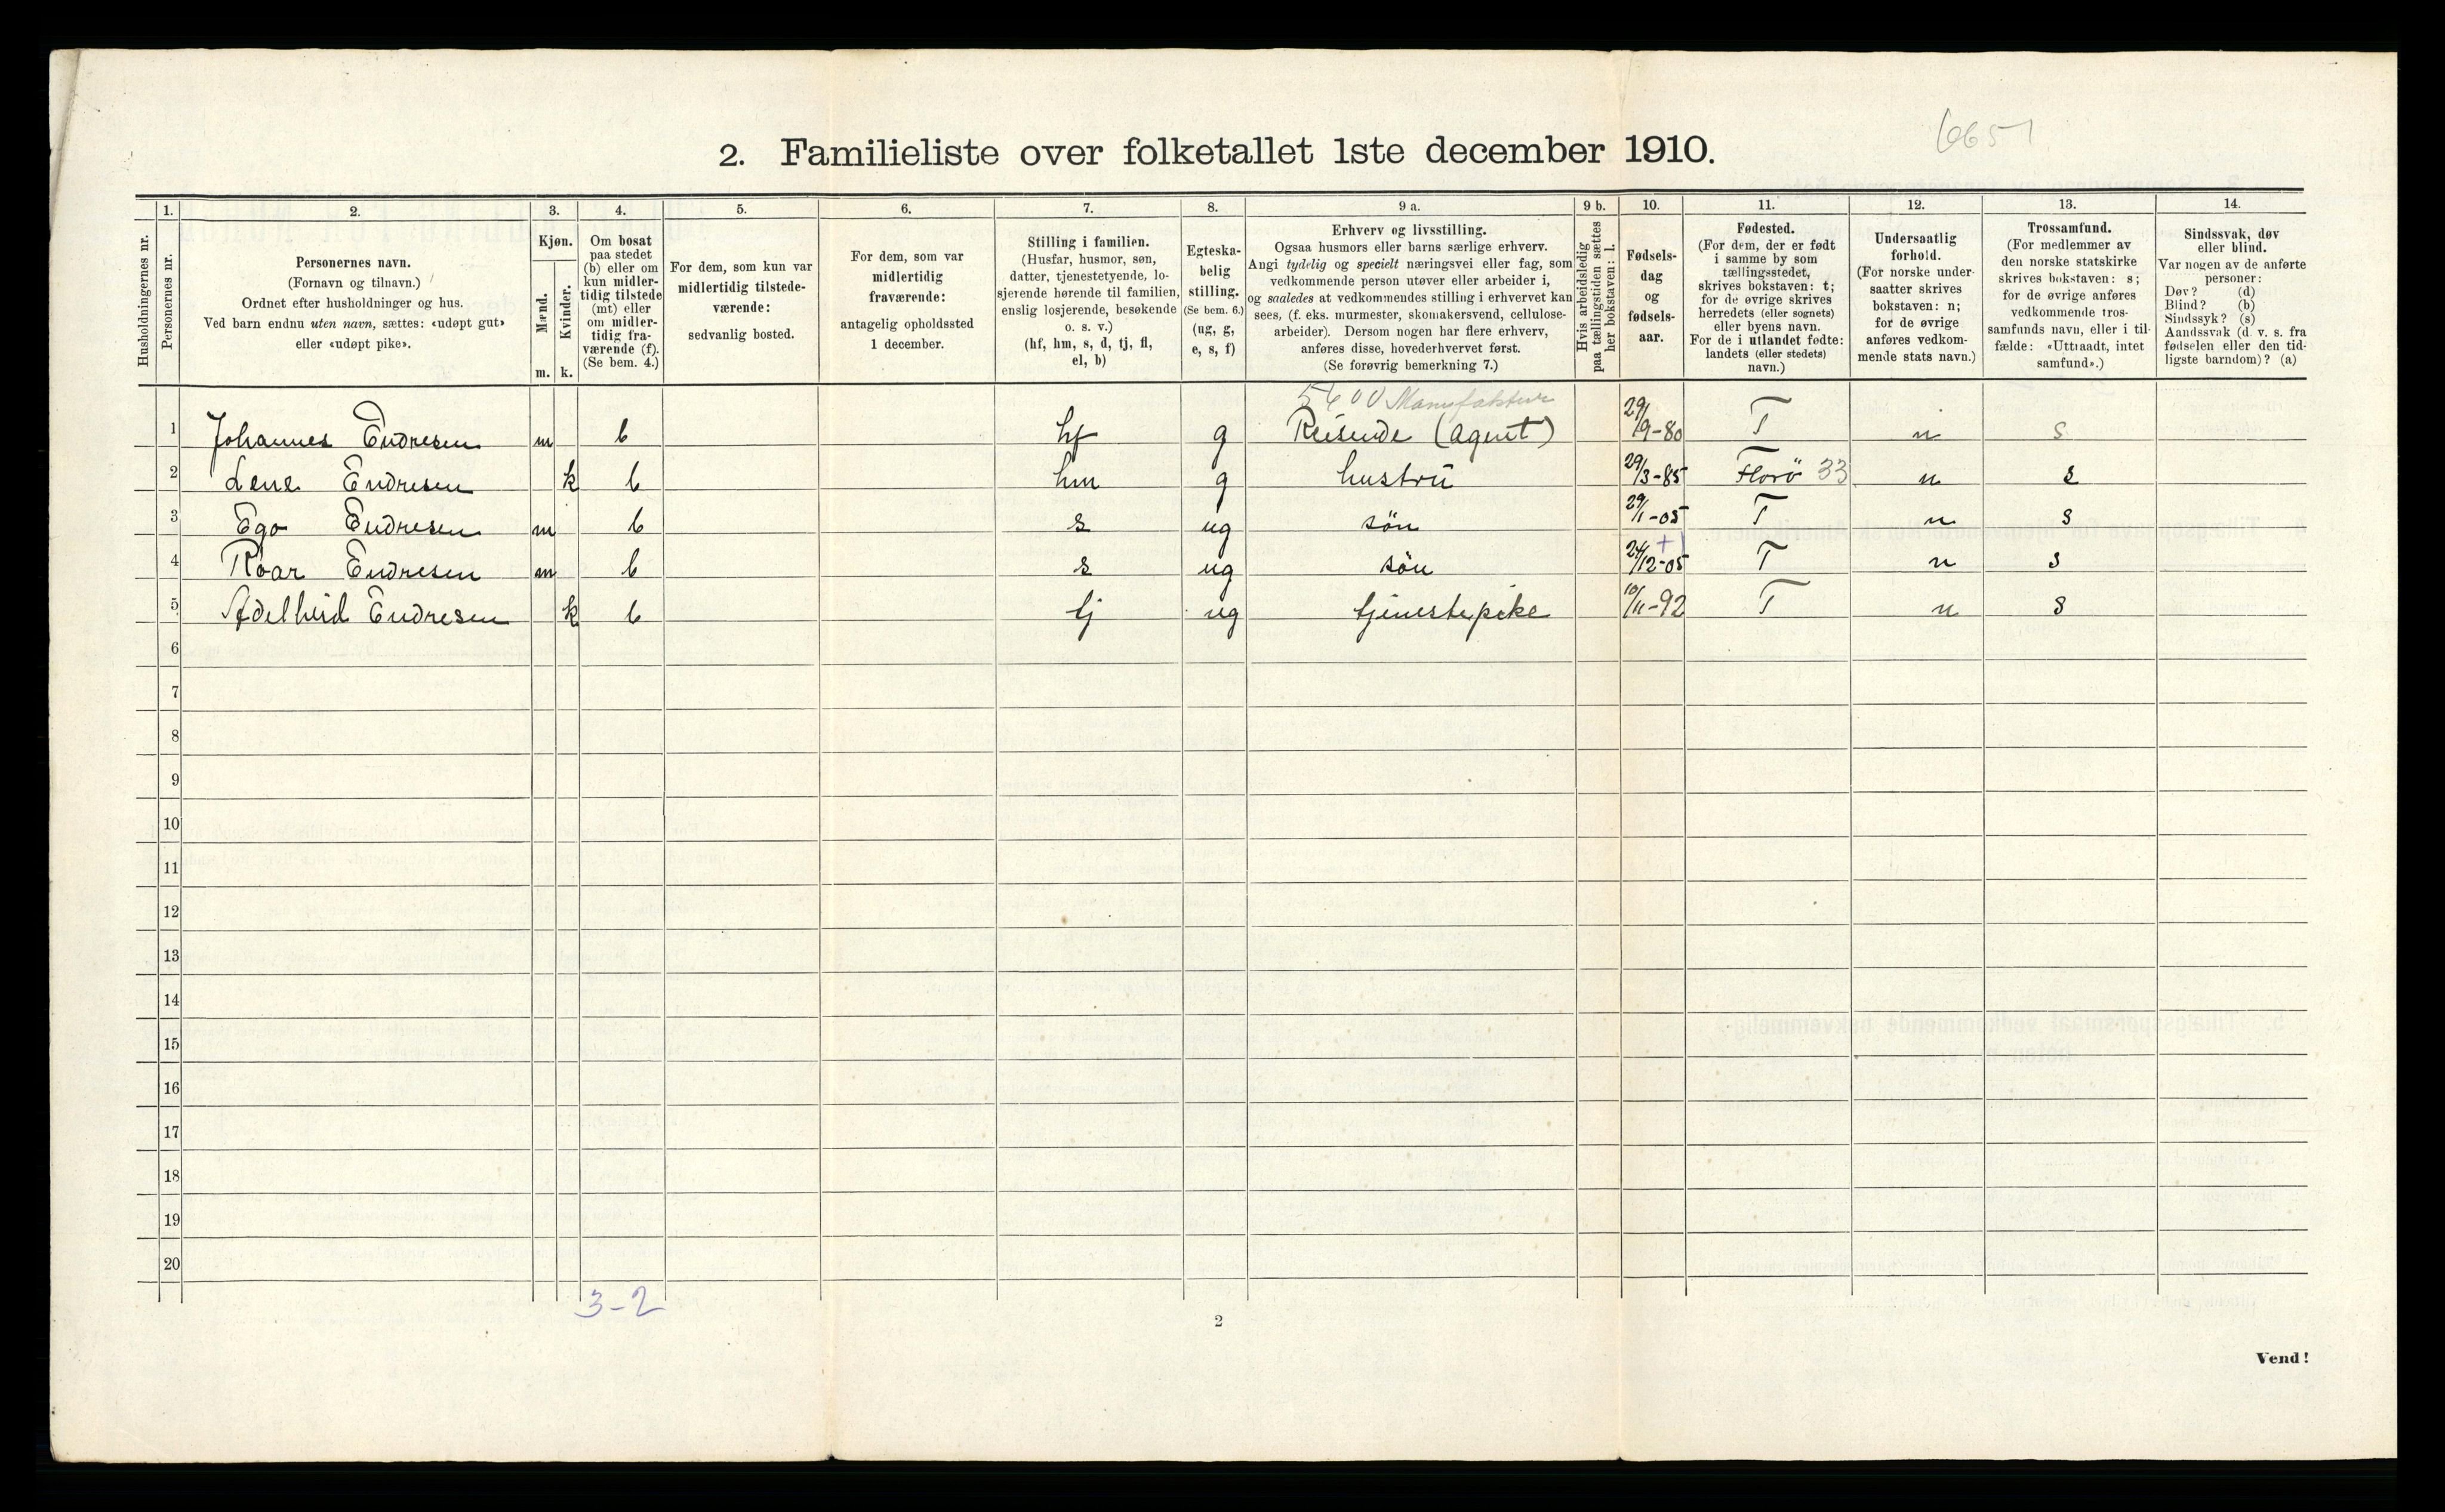 6651
2. Familieliste over folketallet 1ste december 1910.
1. 2. 3. 4. 5. 6. 7. 8. 9 a. 9 b. 10. 11. 12. 13. 14.
Husholdningernes nr.
Personernes nr.
Personernes navn.
(Fornavn og tilnavn.)
Ordnet efter husholdninger og hus.
Ved barn endnu uten navn, sættes: «udøpt gut»
eller «udøpt pike».
Kjøn.
Mænd.
Kvinder.
m. k.
Om bosat
paa stedet
(b) eller om
kun midler-
tidig tilstede
(mt) eller
om midler-
tidig fra-
værende (f).
(Se bem. 4.)
For dem, som kun var
midlertidig tilstede-
værende:
sedvanlig bosted.
For dem, som var
midlertidig
fraværende:
antagelig opholdssted
1 december.
Stilling i familien.
(Husfar, husmor, søn,
datter, tjenestetyende, lo-
sjerende hørende til familien,
enslig losjerende, besøkende
o. s. v.)
(hf, hm, s, d, tj, fl,
el, b)
Egteska-
belig
stilling.
(Se bem. 6.)
(ug, g,
e, s, f)
Erhverv og livsstilling.
Ogsaa husmors eller barns særlige erhverv.
Angi tydelig og specielt næringsvei eller fag, som
vedkommende person utøver eller arbeider i,
og saaledes at vedkommendes stilling i erhvervet kan
sees, (f. eks. murmester, skomakersvend, cellulose-
arbeider). Dersom nogen har flere erhverv,
anføres disse, hovederhvervet først.
(Se forøvrig bemerkning 7.)
Hvis arbeidsledig
paa tællingstiden sættes
her bokstaven: l.
Fødsels-
dag
og
fødsels-
aar.
Fødested.
(For dem, der er født
i samme by som
tællingsstedet,
skrives bokstaven: t;
for de øvrige skrives
herredets (eller sognets)
eller byens navn.
For de i utlandet fødte:
landets (eller stedets)
navn.)
Undersaatlig
forhold.
(For norske under-
saatter skrives
bokstaven: n;
for de øvrige
anføres vedkom-
mende stats navn.)
Trossamfund.
(For medlemmer av
den norske statskirke
skrives bokstaven: s;
for de øvrige anføres
vedkommende tros-
samfunds navn, eller i til-
fælde: «Uttraadt, intet
samfund».)
Sindssvak, døv
eller blind.
Var nogen av de anførte
personer:
Døv? (d)
Blind? (b)
Sindssyk? (s)
Aandssvak (d. v. s. fra
fødselen eller den tid-
ligste barndom)? (a)
5400 Manufaktur
1 Johannes Endresen m b hf g Reisende (agent) 29/9-80 T n s
2 Lene Endresen k b hm g hustru 29/3-85 Florö 33 n s
3 Ego Endresen m b s ug sön 29/1-05 T n s
4 Roar Endresen m b s ug sön 24/12-05 + T n s
5 Adelheid Endresen k b tj ug tjenestepike 10/11-92 T n s
6
7
8
9
10
11
12
13
14
15
16
17
18
19
20
3-2
2
Vend!